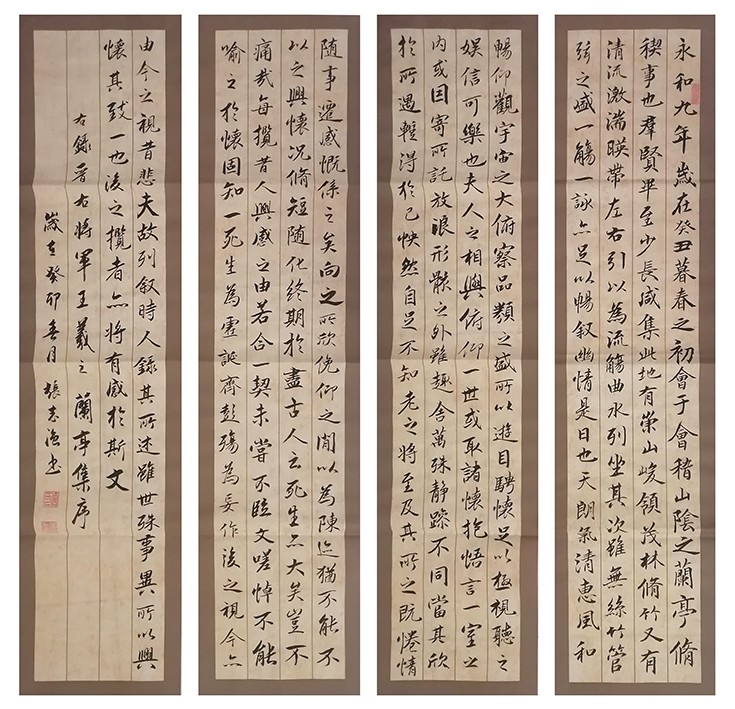 永和九年歲在癸丑暮春之初會于會稽山陰之蘭亭脩
稧事也羣賢畢至少長咸集此地有崇山峻領茂林脩竹又有
清流激湍暎帶左右引以為流觴曲水列坐其次雖無絲竹管
弦之盛一觴一詠亦足以暢叙幽情是日也天朗氣清惠風和
暢仰觀宇宙之大俯察品類之盛所以遊目騁懷足以極視聽之
娛信可樂也夫人之相與俯仰一世或取諸懷抱悟言一室之
內或因寄所託放浪形骸之外雖趣舍萬殊靜躁不同當其欣
於所遇輕得於己怏然自足不知老之將至及其所之既惓情
隨事遷感慨係之矣向之所欣俛仰之閒以為陳迹猶不能不
以之興懷況脩短隨化終期於盡古人云死生亦大矣豈不
痛哉每攬昔人興感之由若合一契未嘗不臨文嗟悼不能
喻之於懷固知一死生為虛誕齊彭殤為妄作後之視今亦
由今之視昔悲夫故列叙時人錄其所述雖世殊事異所以興
懷其致一也後之攬者亦將有感於斯文
右錄晉右將軍王羲之蘭亭集序
歲在癸卯春月張志書